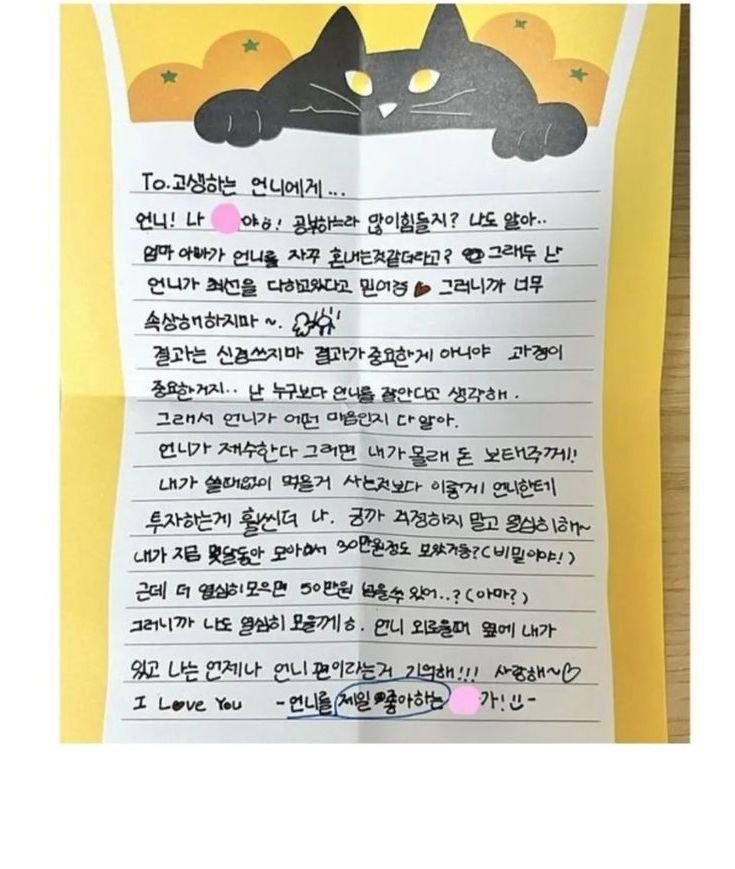 To.고생하는 언니에게...
언니! 나 야ㅎ! 공부하느라 많이힘들지? 나도 알아..
엄마 아빠가 언니를 자꾸 혼내는것같더라고? 그래두 난
언니가 최선을 다하고있다고 믿어경 그러니까 너무
속상해하지마~.
결과는 신경쓰지마 결과가중요한게 아니야 과정이
중요한거지.. 난 누구보다 언니를 잘안다고 생각해.
그래서 언니가 어떤 마음인지 다알아.
언니가 재수한다 그러면 내가몰래 돈 보태주께!!
내가 쓸때없이 먹을거 사는것보다 이렇게 언니한테
투자하는게 훨씬더 나. 긍까 걱정하지 말고 열심히해~
내가 지금 몇달동안 모아서 30만원정도 모았거등?(비밀이야!)
근데 더 열심히모으면 50만원 넘을수있어..?(아마?)
그러니까 나도 열심히 모을께ㅎ. 언니 외로울때 옆에 내가
있고 나는언제나 언니편이라는거 기억해!!! 사랑해~♡
I Love You -언니를 제일 좋아하는 가!-